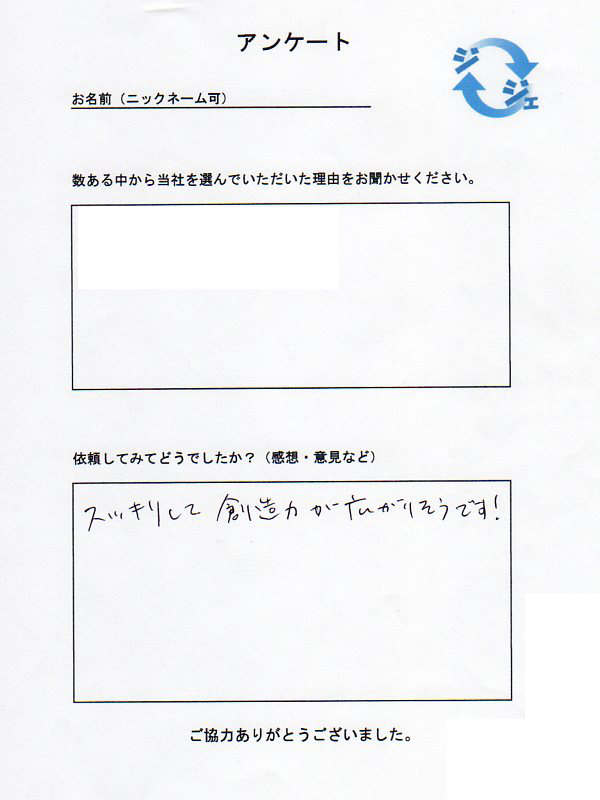 アンケート
ジジェ
お名前（ニックネーム可）
数ある中から当社を選んでいただいた理由をお聞かせください。
依頼してみてどうでしたか？（感想・意見など）
スッキリして創造力が広がりそうです！
ご協力ありがとうございました。